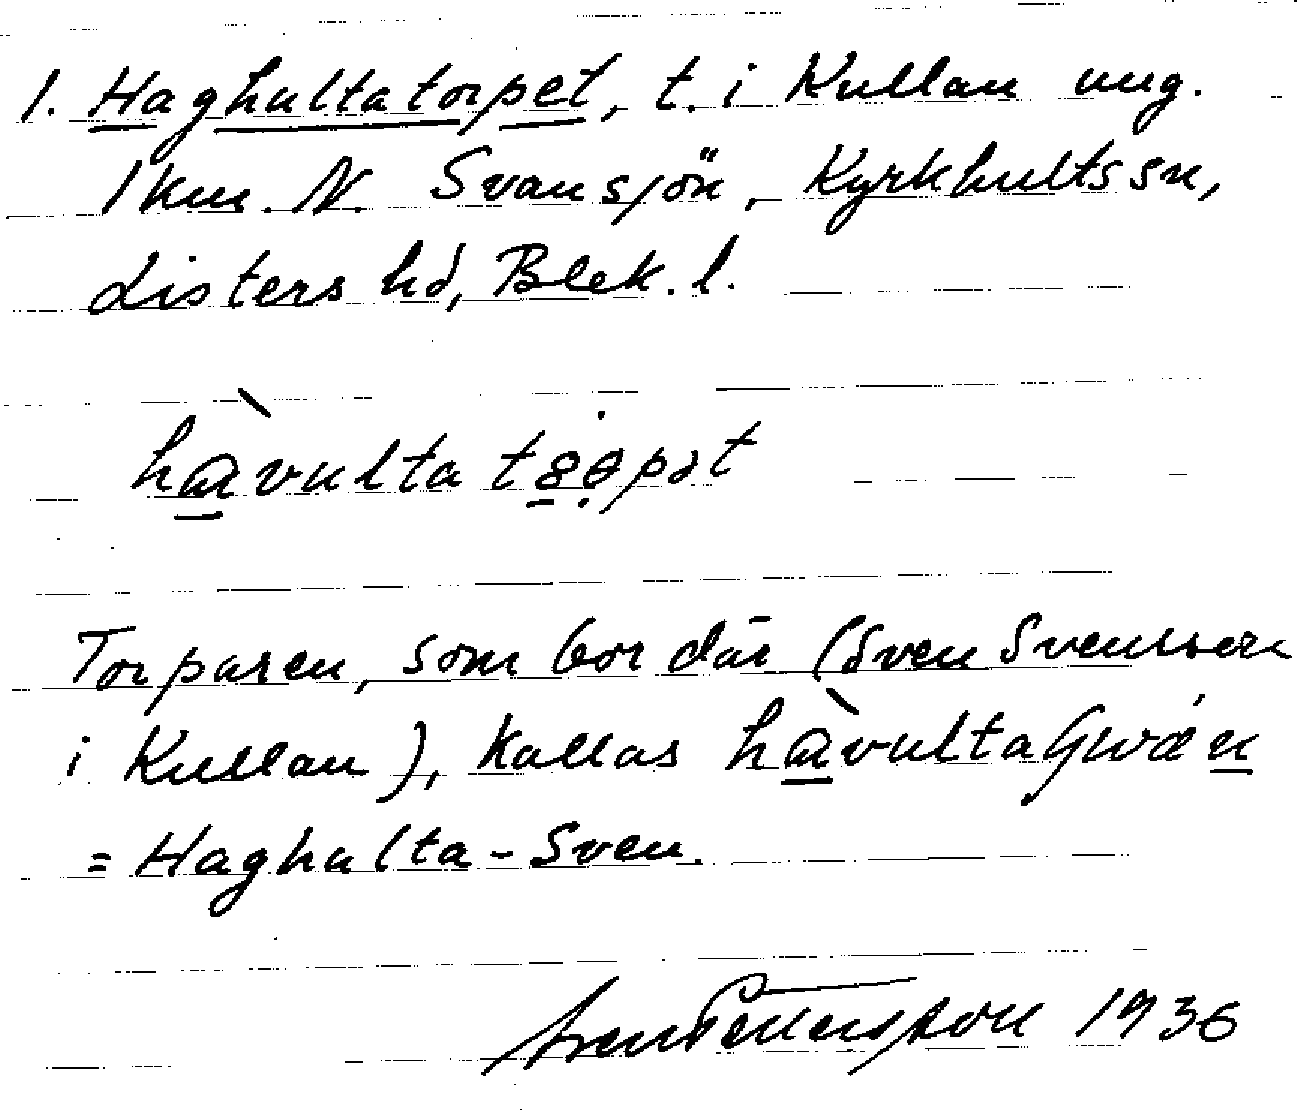 1. Haghultatorpet, t. i Kullan ung.
1 km. N. Svansjön, Kyrkhults sn,
Listers hd, Blek. l.
Torparen, som bor där (Sven Svensson
i Kullan), kallas
= Haghulta-Sven.
Pettersson 1936